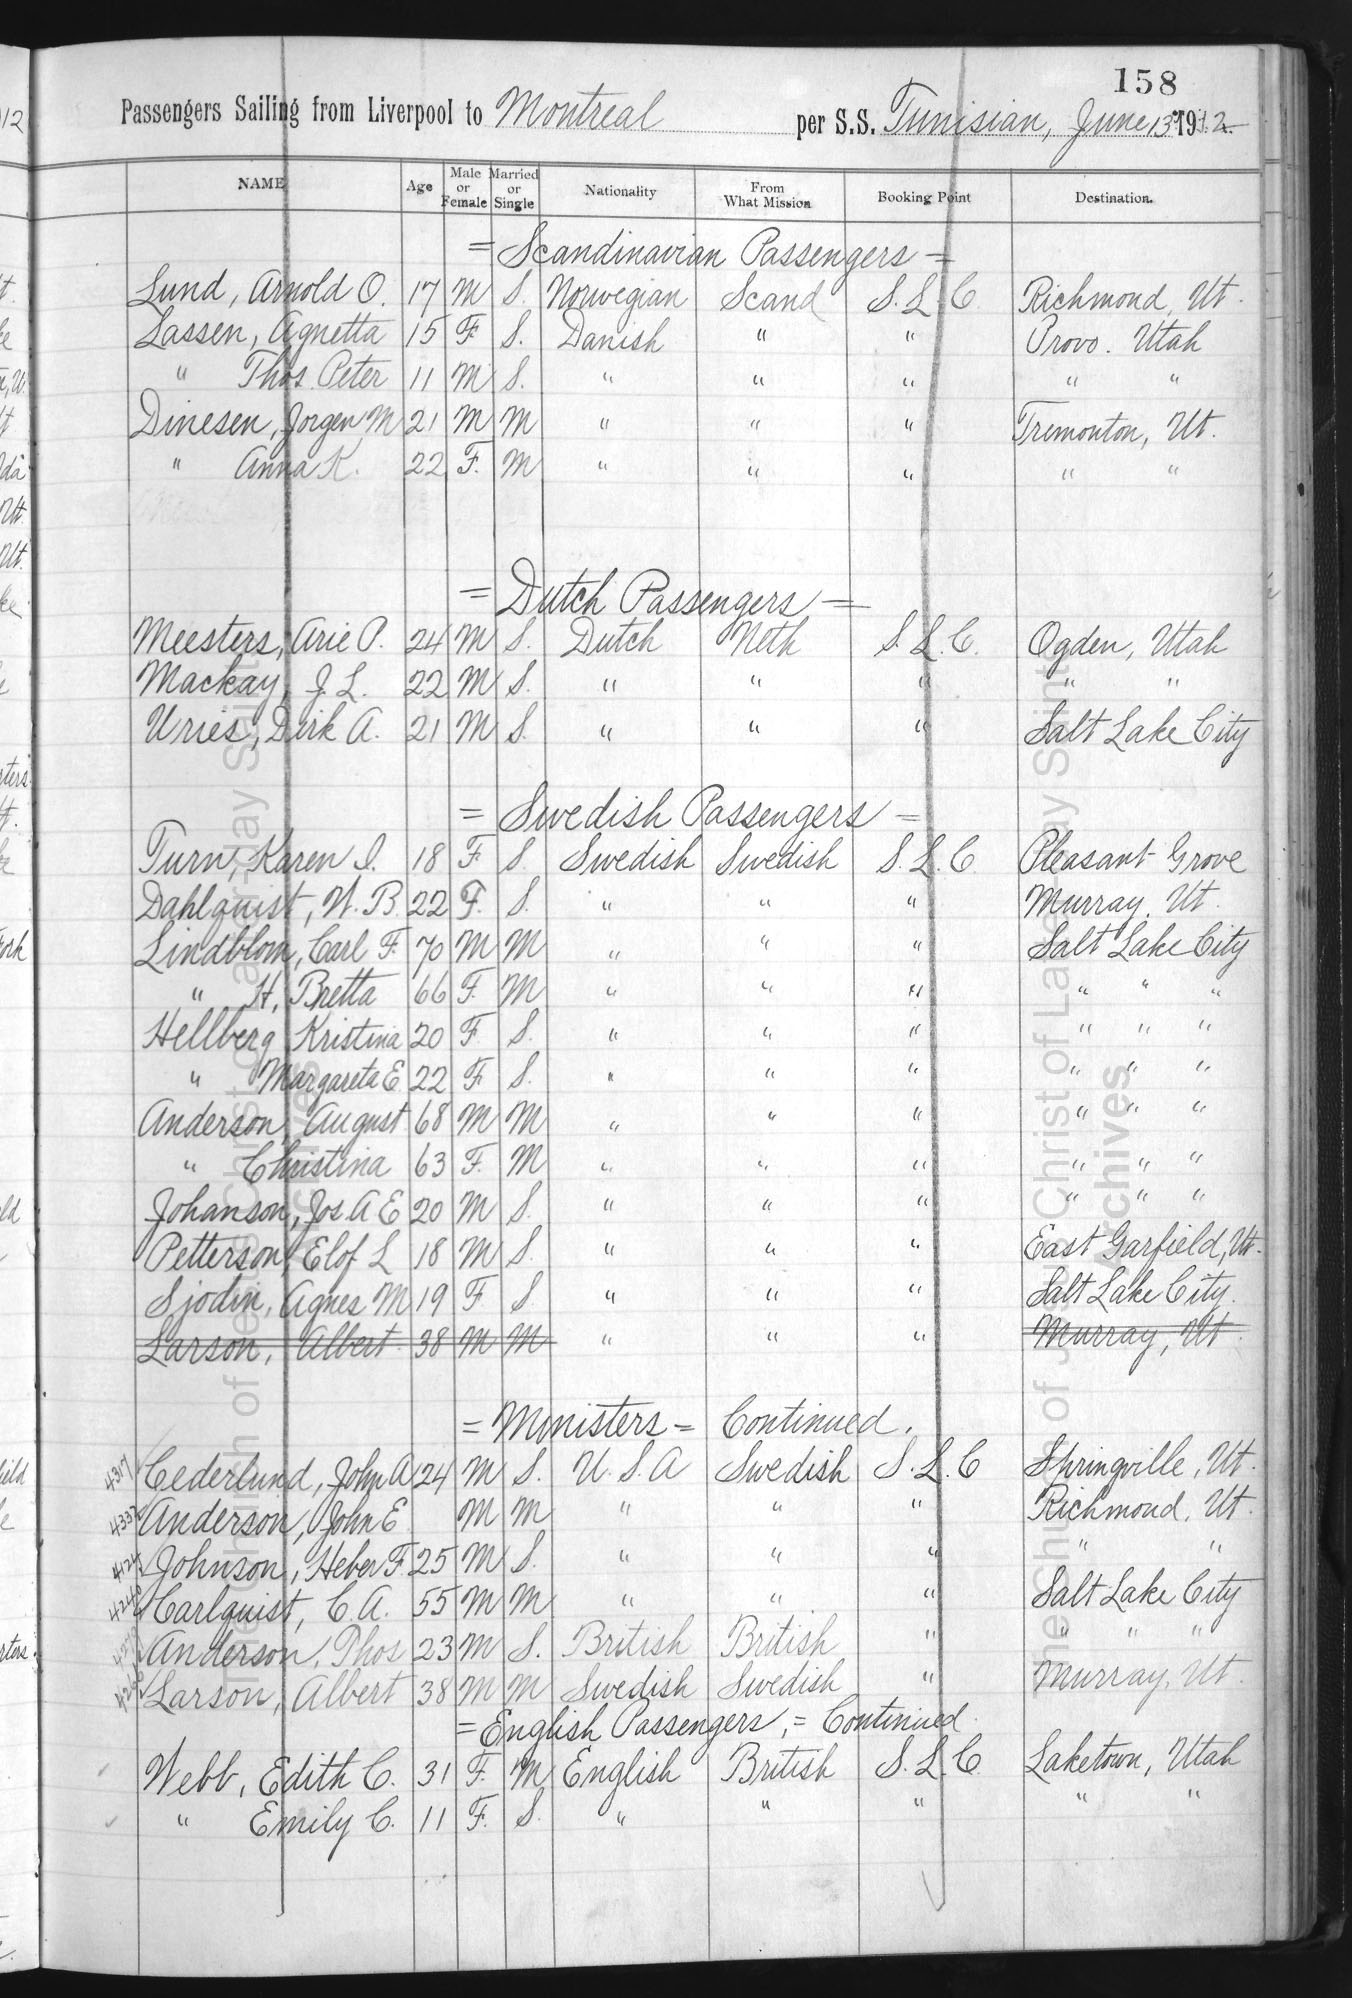 158
Passengers Sailing from Liverpool to Montreal per S.S. Tunisian, June 13 1912
NAME Age Male or Female Married or Single Nationality From What Mission Booking Point Destination.
= Scandinavian Passengers =
Lund, Arnold O. 17 M S. Norwegian Scand S.L.C. Richmond, Ut.
Lassen, Agnetta 15 F S. Danish " " Provo. Utah
" Thos Peter 11 M S. " " " " "
Dinesen, Jorgen M 21 M M " " " Tremonton, Ut.
" Anna K. 22 F. M " " " " "
= Dutch Passengers =
Meesters, Arie P. 24 M S. Dutch Neth S.L.C. Ogden, Utah
Mackay, J.L. 22 M S. " " " " "
Uries, Dirk A. 21 M S. " " " Salt Lake City
= Swedish Passengers =
Turn, Karen I. 18 F S. Swedish Swedish S.L.C Pleasant Grove
Dahlquist, W.B. 22 F. S. " " " Murray, Ut.
Lindblom, Carl F. 70 M M " " " Salt Lake City
" H, Bretta 66 F. M " " " " " "
Hellberg Kristina 20 F S. " " " " " "
" Margareta E 22 F S. " " " " " "
Anderson, August 68 M M " " " " " "
" Christina 63 F. M " " " " " "
Johanson, Jos A E 20 M S. " " " " " "
Petterson, Elof L 18 M S. " " " East Garfield, Ut.
Sjodin, Agnes M 19 F S " " " Salt Lake City.
Larson, Albert 38 M M " " " Murray, Ut
= Ministers = Continued.
4317 Cederlund, John A 24 M S. U.S.A Swedish S.L.C Springville, Ut.
4332 Anderson, John E M M " " " Richmond, Ut.
4124 Johnson, Heber F 25 M S. " " " " "
4240 Carlquist, C.A. 55 M M " " " Salt Lake City
Anderson, Thos 23 M S. British British " " " "
Larson, Albert 38 M M Swedish Swedish " Murray, Ut.
= English Passengers, = Continued
Webb, Edith C. 31 F. M English British S.L.C. Laketown, Utah
" Emily C. 11 F. S. " " " " "